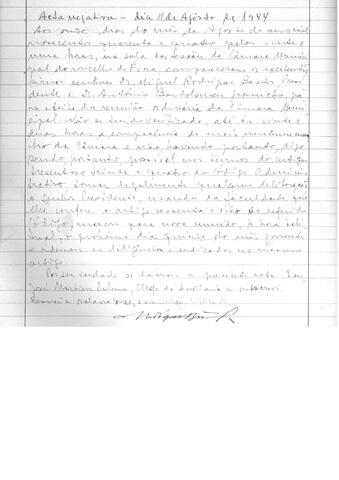 Acta negativa - dia 11 de Agosto de 1944
Aos onze dias do mês de Agosto do ano de mil
novecentos quarenta e quatro pelas vinte e
uma horas, na sala das sessões da Câmara Muni-
cipal do concelho de compareceram os excelentís-
simos senhores Dr. Miguel Rodrigues Bastos Presi-
dente e Dr. António Bartolomeu pa-
ra efeito da reunião ordinária da Câmara Mu-
nicipal. Não se tendo verificado, até às vinte e
duas horas a comparência de mais nenhum mem-
bro da Câmara e não havendo portanto, digo
sendo, portanto, possível nos termos do artigo
trezentos e trinta e quatro do Código Adminis-
trativo tomar legalmente qualquer deliberação
o Senhor Presidente, usando da faculdade que
lhe confere o artigo sessenta e do referido
Código, marcou para nova reunião, à hora ha-
bitual, o próximo dia quinze do mês corrente
e ordenou as diligências indicadas no mesmo
artigo.
Por ser verdade se lavrou a presente acta. E eu,
José Chefe da Secretaria a subscrevi.